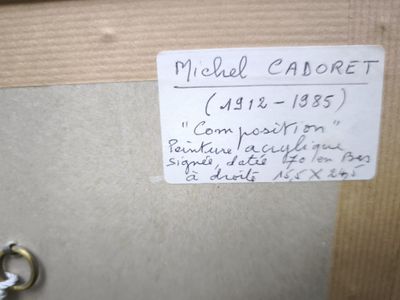 Michel CADORET
(1912-1985)
"Composition"
Peinture acrylique
signée, datée 70 en Bas
à droite 15,5 X 24,5